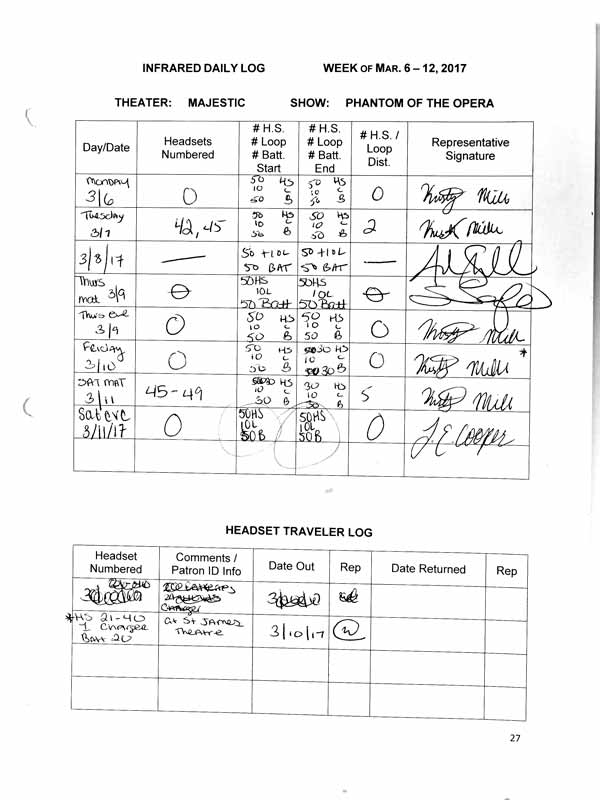 INFRARED DAILY LOG WEEK OF MAR. 6 – 12, 2017
THEATER: MAJESTIC SHOW: PHANTOM OF THE OPERA
Day/Date Headsets Numbered # H.S. # Loop # Batt. Start # H.S. # Loop # Batt. End # H.S. / Loop Dist. Representative Signature
Monday 3/6 0 50 HS 10 L 50 B 50 HS 10 L 50 B 0
Tuesday 3/7 42, 45 50 HS 10 L 50 B 50 HS 10 L 50 B 2
3/8/17 — 50 +10L 50 BAT 50 +10L 50 BAT —
Thurs mat 3/9 0 50HS 10L 50 Batt 50HS 10L 50 Batt 0
Thurs Eve 3/9 0 50 HS 10 L 50 B 50 HS 10 L 50 B 0
Friday 3/10 0 50 HS 10 L 50 B 30 HS 10 L 30 B 0 *
SAT MAT 3/11 45-49 30 HS 10 L 30 B 30 HS 10 L 30 B 5
Sat eve 3/11/17 0 50HS 10L 50B 50HS 10L 50B 0 J. E. Cooper
HEADSET TRAVELER LOG
Headset Numbered Comments / Patron ID Info Date Out Rep Date Returned Rep
*HS 21-40 1 Charger Batt 20 at St James Theatre 3/10/17
27